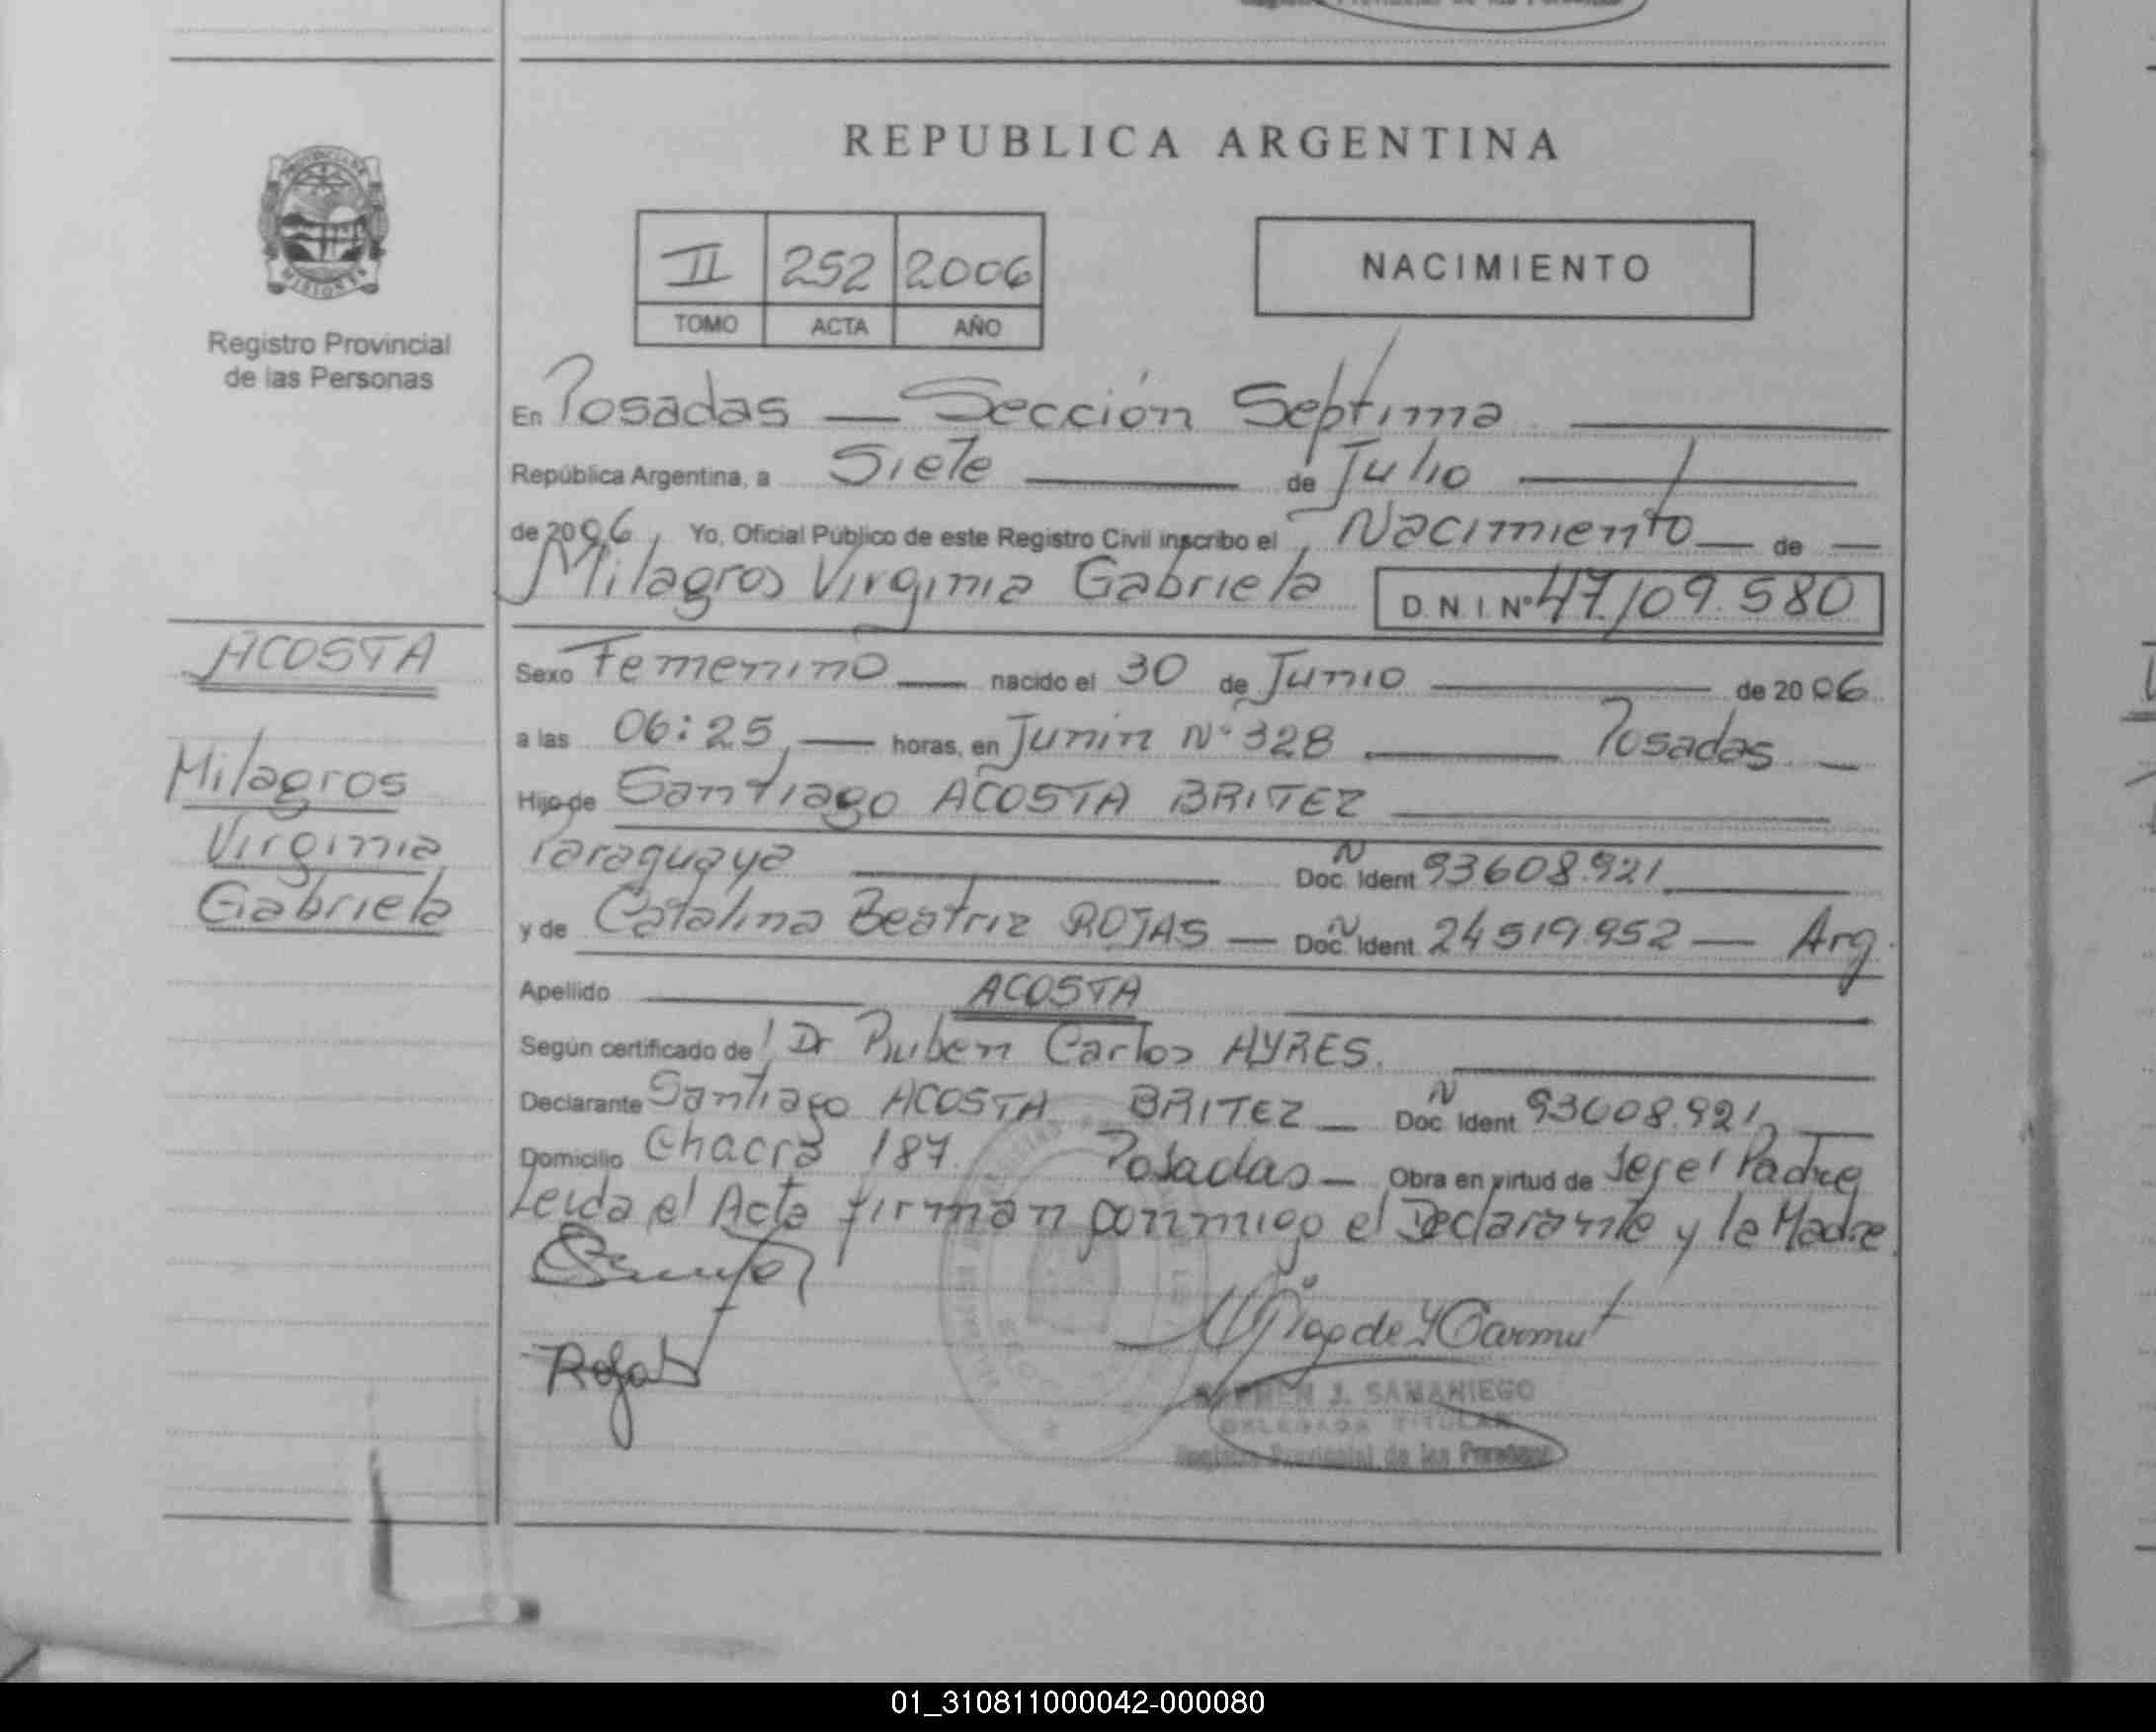 REPUBLICA ARGENTINA
PROVINCIA DE
MISIONES
Registro Provincial
de las Personas
II 252 2006
TOMO ACTA AÑO
NACIMIENTO
En Posadas — Sección Septima
República Argentina, a Siete de Julio
de 2006, Yo, Oficial Público de este Registro Civil inscribo el Nacimiento — de —
Milagros Virginia Gabriela D.N.I.Nº 47.109.580
ACOSTA
Milagros
Virginia
Gabriela
Sexo Femenino — nacido el 30 de Junio de 2006
a las 06:25, — horas, en Junin Nº 328 Posadas —
Hijo de Santiago ACOSTA BRITEZ
Paraguaya Doc. Ident N 93608.921
y de Catalina Beatriz ROJAS — Doc. Ident N 24519.952 — Arg.
Apellido ACOSTA
Según certificado de Dr Ruben Carlos AYRES.
Declarante Santiago ACOSTA BRITEZ — Doc. Ident N 93608.921,
Domicilio Chacra 187. Posadas — Obra en virtud de ser el Padre
Leida el Acta firman conmigo el Declarante y la Madre
Rojas
CARMEN J. SAMANIEGO
DELEGADA TITULAR
Registro Provincial de las Personas
01_310811000042-000080